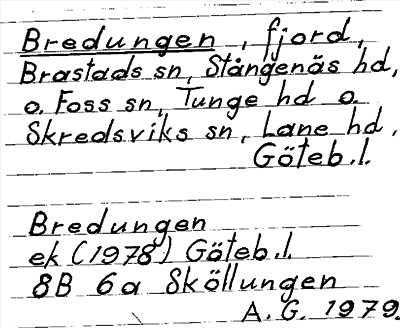 Bredungen, fjord,
Brastads sn, Stångenäs hd,
o. Foss sn, Tunge hd o.
Skredsviks sn, Lane hd.
Göteb.l.
Bredungen
ek (1978) Göteb.l.
8B 6a Sköllungen
A.G. 1979.